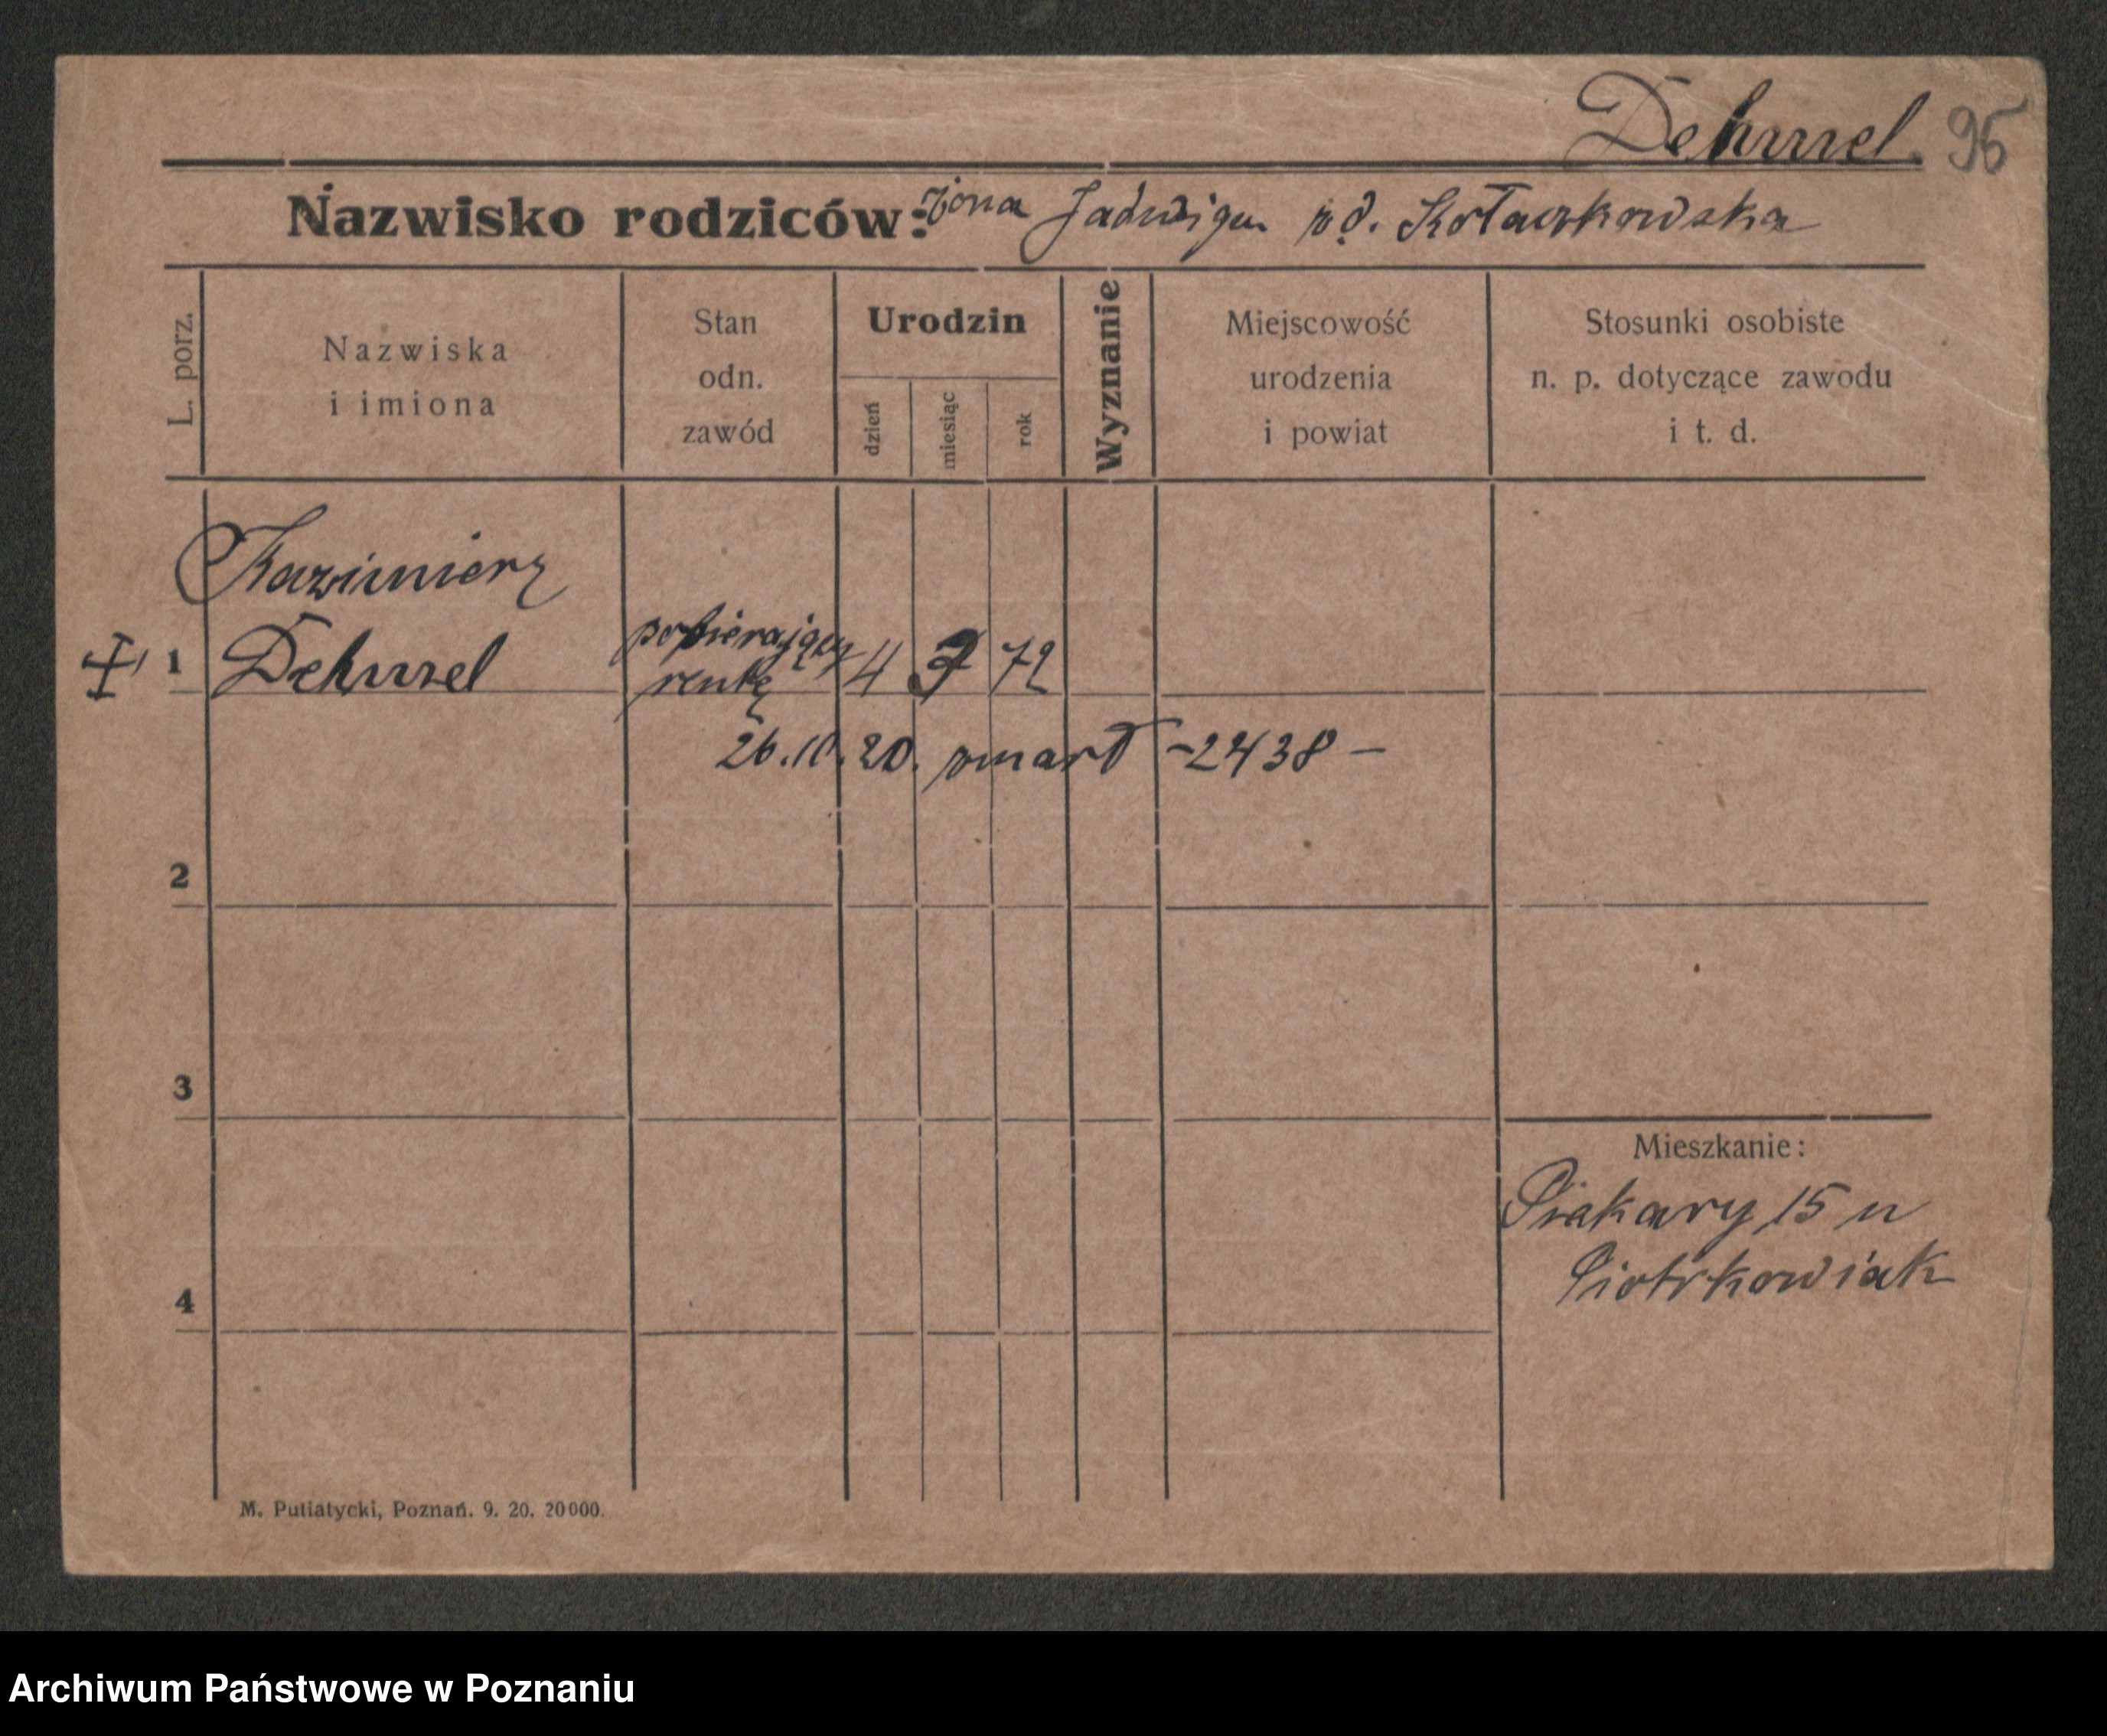 Dehmel. 95
Nazwisko rodziców: żona Jadwiga
L. porz.
Nazwiska
i imiona
Stan
odn.
zawód
Urodzin
dzień
miesiąc
rok
Wyznanie
Miejscowość
urodzenia
i powiat
Stosunki osobiste
n. p. dotyczące zawodu
i t. d.
Kazimierz
1 Dehmel
pobierający
rentę
4 72
26.10.20. zmarł -2438-
2
3
4
Mieszkanie:
Piekary 15 u
Piotrkowiak
M. Putiatycki, Poznań. 9. 20. 20000.
Archiwum Państwowe w Poznaniu